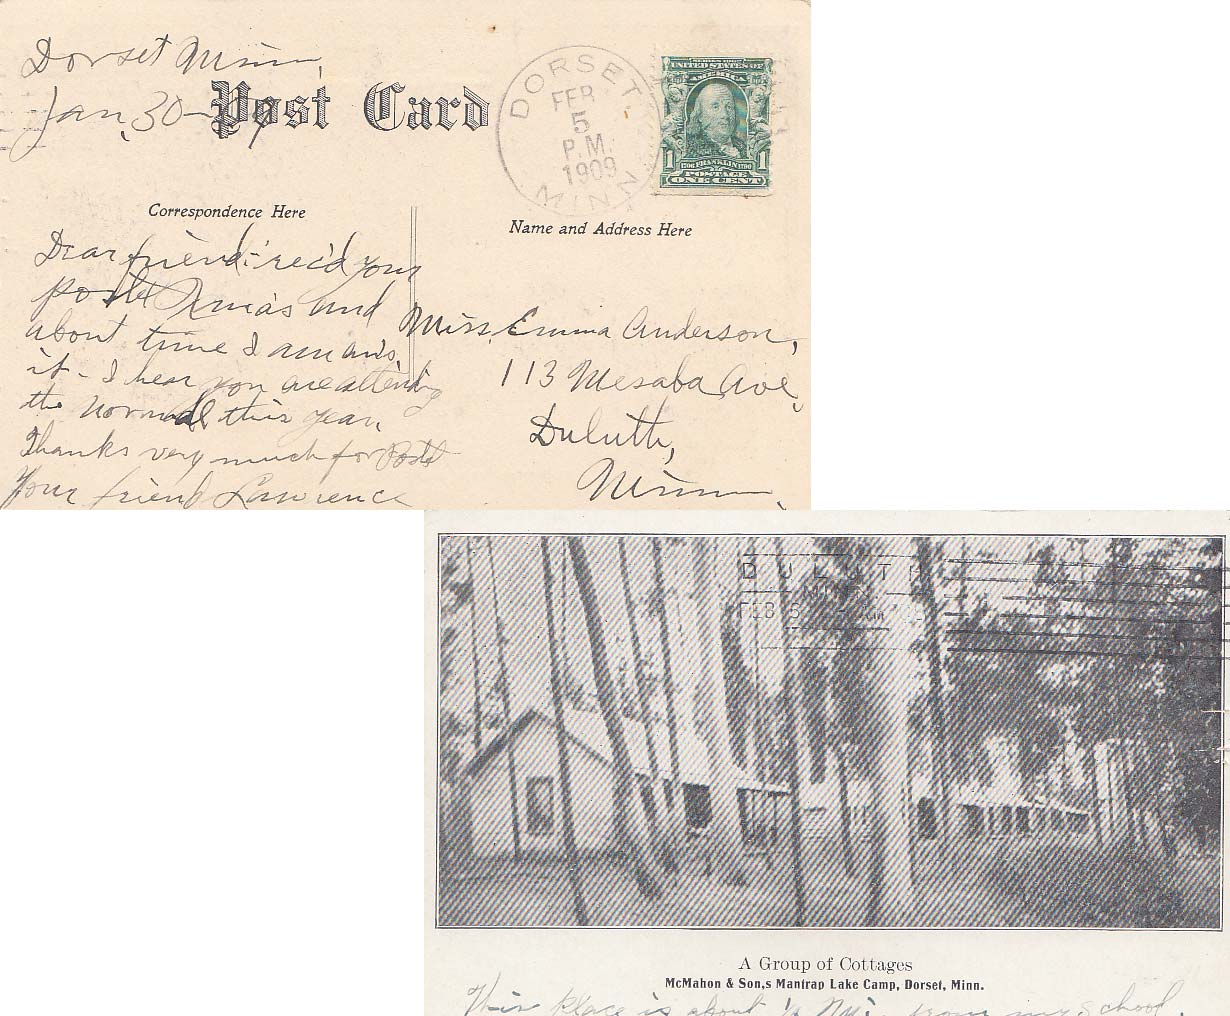 Dorset Minn.
Jan. 30-09
Post Card
DORSET.
FEB
5
P.M.
1909
MINN
SERIES 1902
UNITED STATES OF
AMERICA
1 1706 FRANKLIN 1790 1
POSTAGE
ONE CENT
Correspondence Here
Name and Address Here
Dear friend:- rec'd your
postal Xmas and
about time I am ans.
it - I hear you are attending
the normal this year.
Thanks very much for Postal
Your friend Lawrence
Miss. Emma Anderson,
113 Mesaba Ave,
Duluth,
Minn.
DULUTH
MINN
FEB 6 AM
A Group of Cottages
McMahon & Son,s Mantrap Lake Camp, Dorset, Minn.
This place is about Mi. from my school.